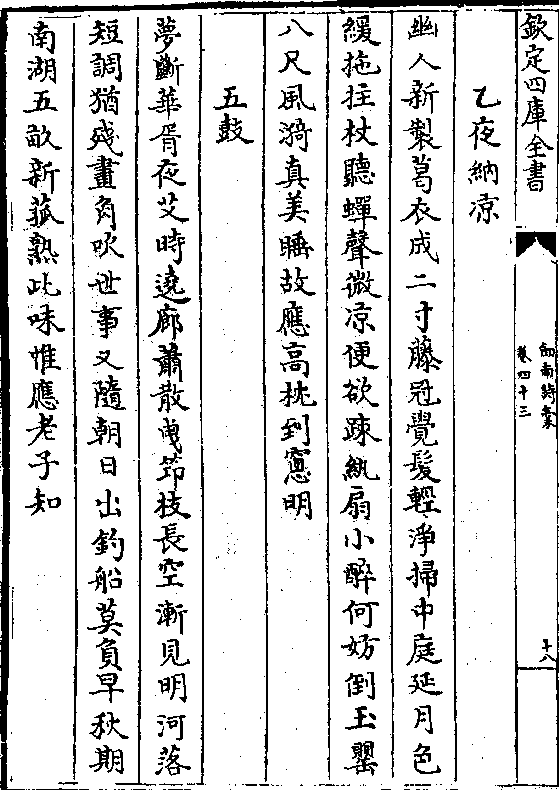 欽定四庫全書
劍南詩藁
卷四十三
十八
乙夜納凉
幽人新製葛衣成二寸藤冠覺髮輕淨掃中庭延月色
緩拖拄杖聽蟬聲微凉便欲疎紈扇小醉何妨倒玉罌
八尺風漪真美睡故應高枕到窻明
五鼓
夢斷華胥夜艾時遶廊蕭散曳筇枝長空漸見明河落
短調猶殘畫角吹世事又隨朝日出釣船莫負早秋期
南湖五畝新菰熟此味惟應老子知